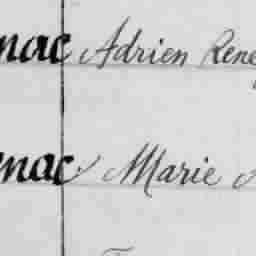 nac Adrien Rene
nac Marie